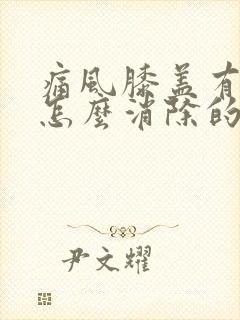 痛风膝盖有
怎麼消除的
尹文耀